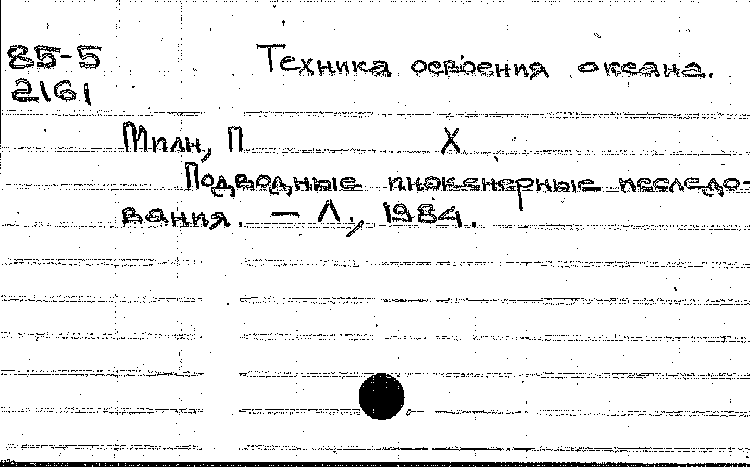 85-5 Техника освоения океана.
2161
Милн, П X
Подводные инженерные исследо-
вания. — Л., 1984.